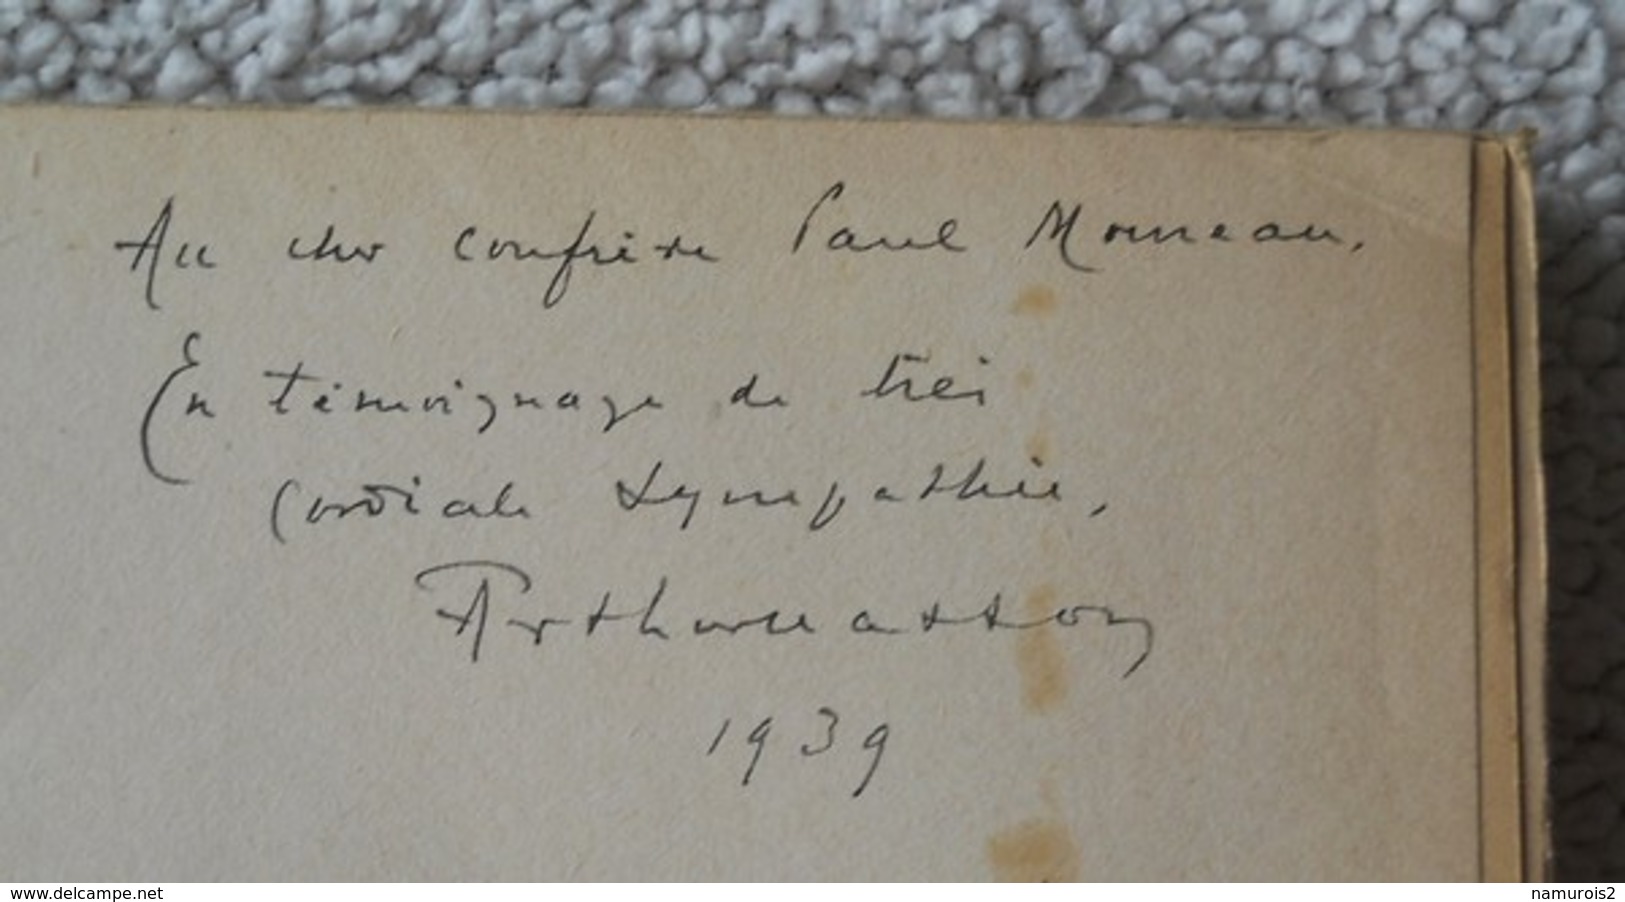 Au cher confrère Paul Moineau.
En témoignage de très
cordiale sympathie,
Arthur Masson
1939
www.delcampe.net
namurois2